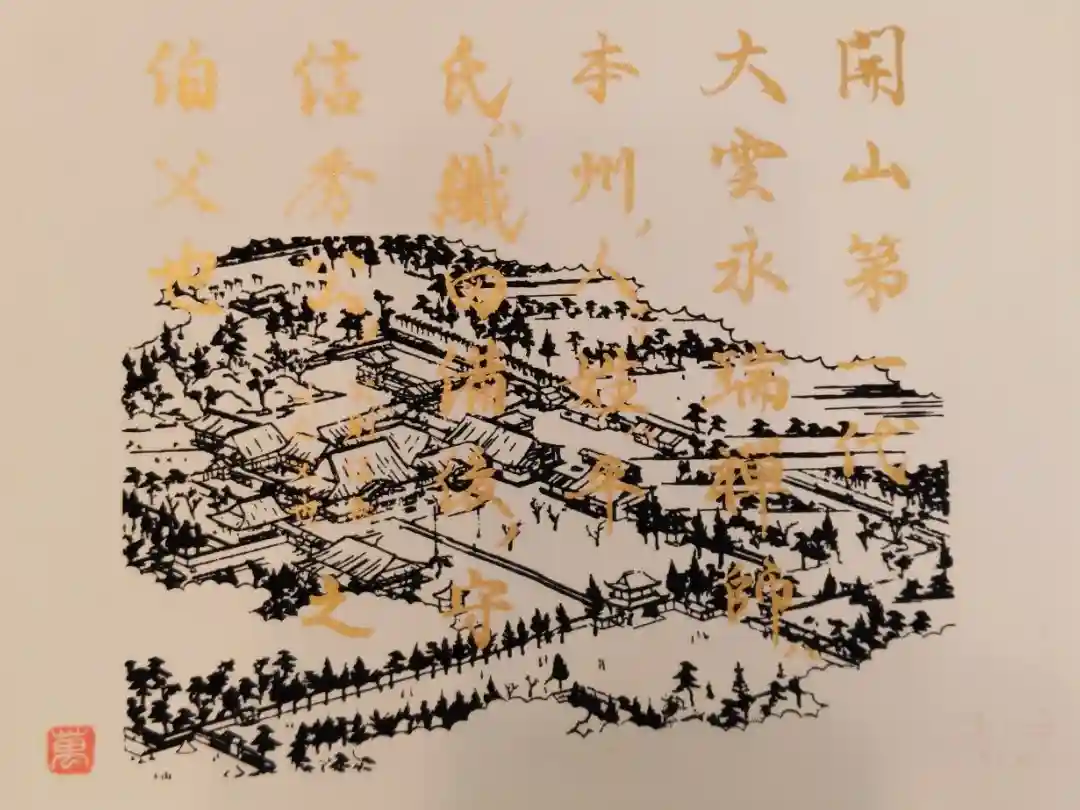 開山第一代
大雲永瑞禪師ハ
本州ノ人姓平
氏ハ織田備後ノ守
信秀公之
伯父也
萬